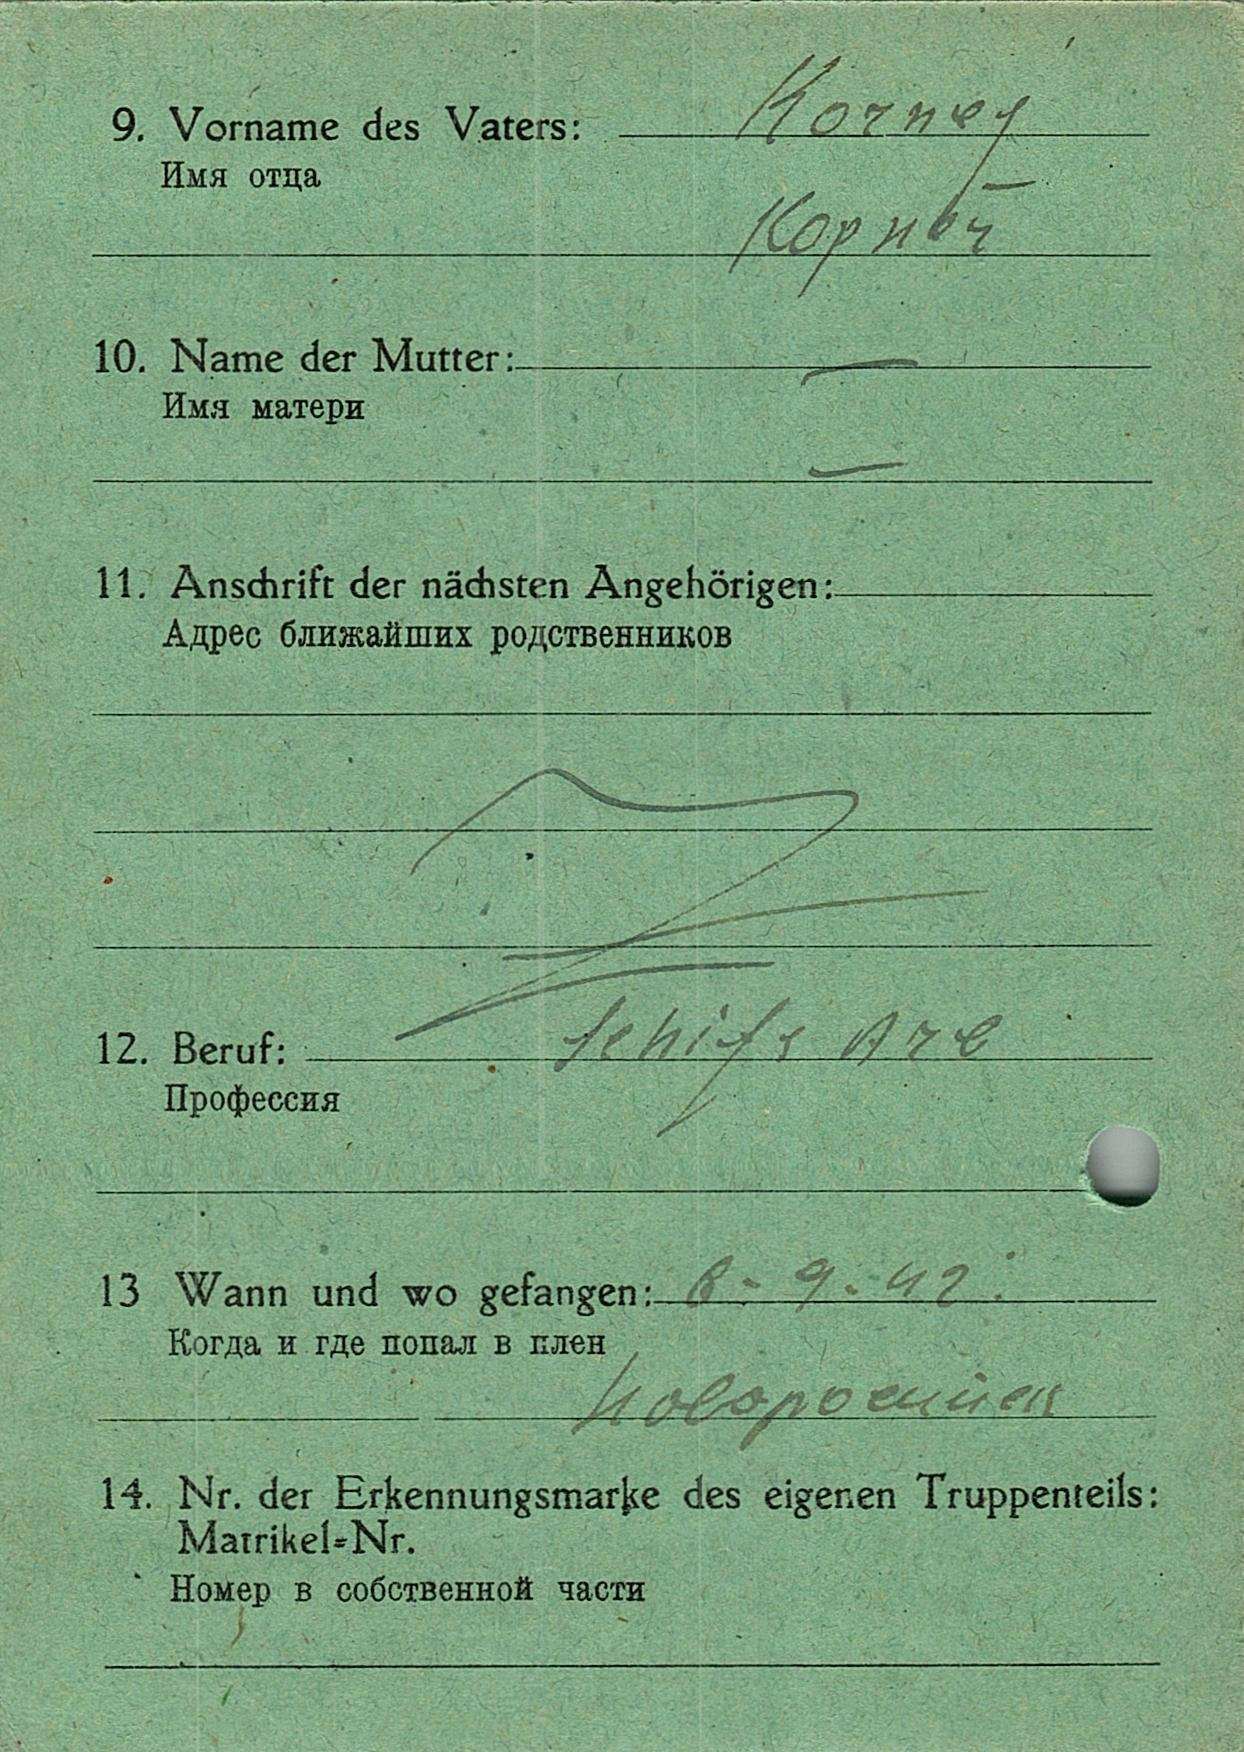 9. Vorname des Vaters: Korney
Имя отца
Корней
10. Name der Mutter: —
Имя матери
—
11. Anschrift der nächsten Angehörigen:
Адрес ближайших родственников
12. Beruf: Schifs
Профессия
13 Wann und wo gefangen: 8-9-42.
Когда и где попал в плен
Новороссийск
14. Nr. der Erkennungsmarke des eigenen Truppenteils:
Matrikel-Nr.
Номер в собственной части